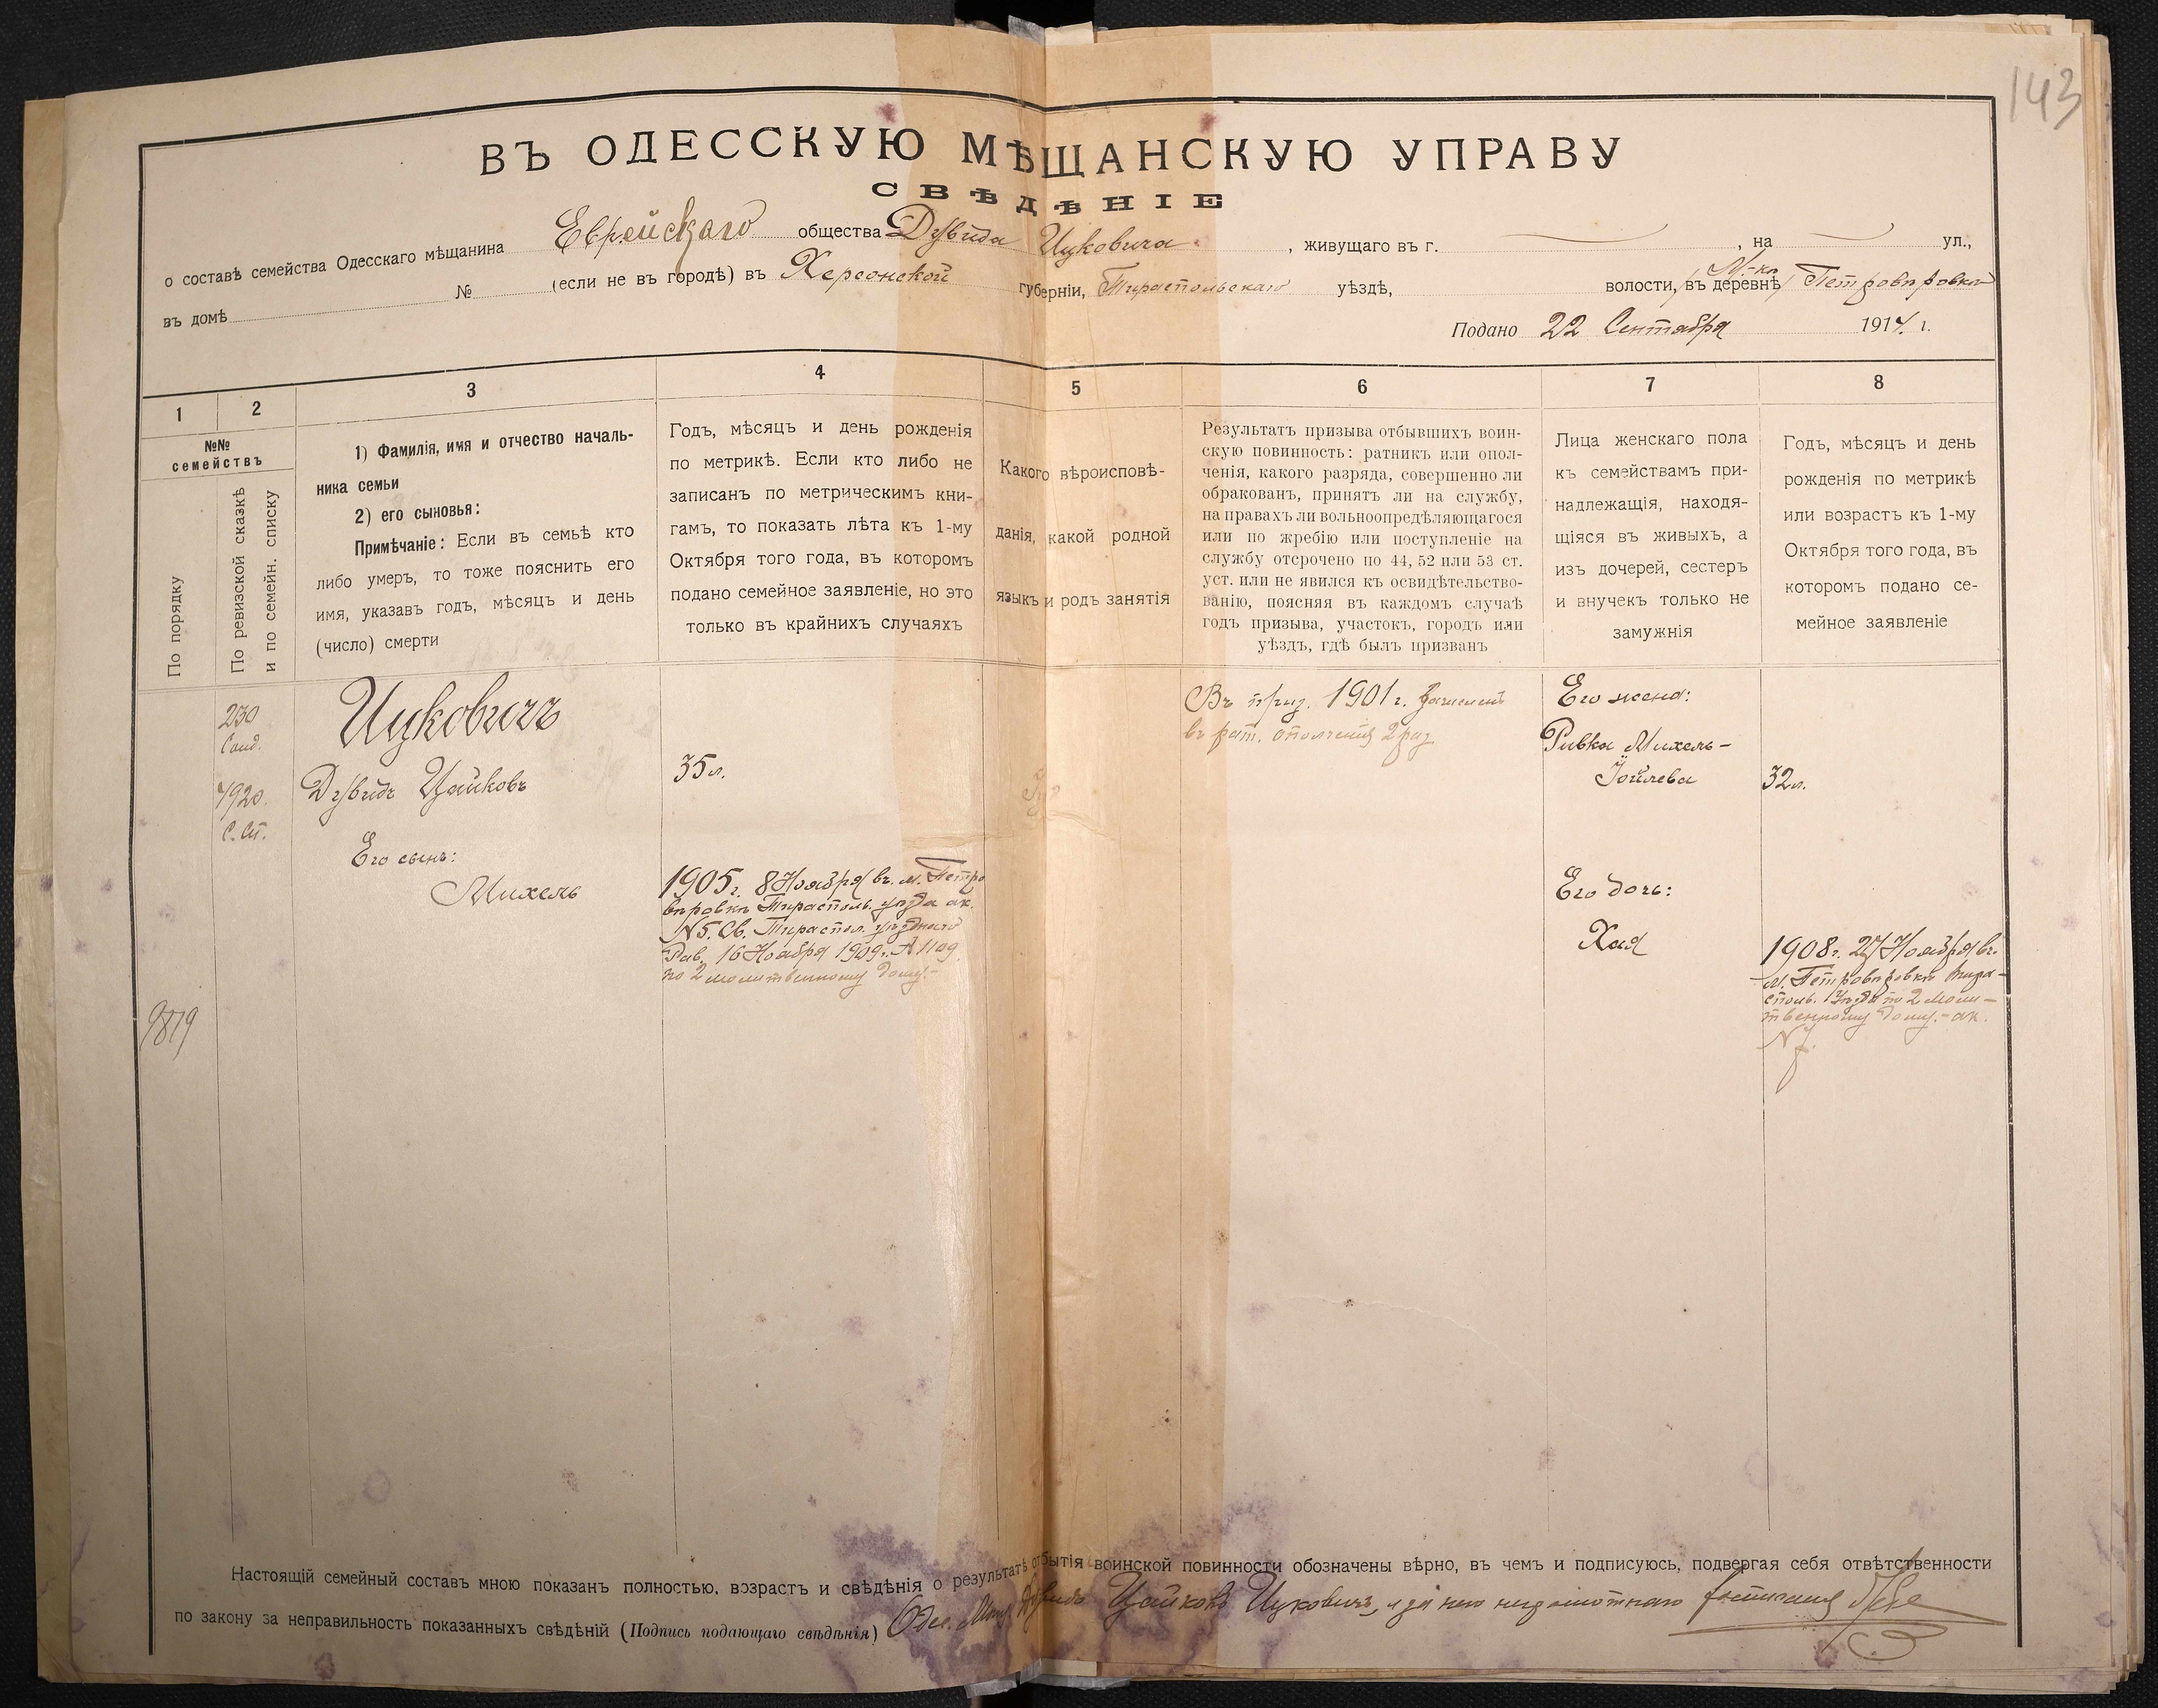 143
ВЪ ОДЕССКУЮ МѢЩАНСКУЮ УПРАВУ
СВѢДѢНІЕ
о составѣ семейства Одесскаго мѣщанина Еврейскаго общества Дувида Ицковича, живущаго въ г. , на ул.,
въ домѣ № (если не въ городѣ) въ Херсонской губерніи, Тираспольскаго уѣздѣ, волости, въ деревнѣ М-кѣ Петровѣровкѣ
Подано 22 Сентября 1914 г.
1 2 3 4 5 6 7 8
№№ семействъ
По порядку
По ревизской сказкѣ
и по семейн. списку
1) Фамилія, имя и отчество началь-
ника семьи
2) его сыновья:
Примѣчаніе: Если въ семьѣ кто
либо умеръ, то тоже пояснить его
имя, указавъ годъ, мѣсяцъ и день
(число) смерти
Годъ, мѣсяцъ и день рожденія
по метрикѣ. Если кто либо не
записанъ по метрическимъ кни-
гамъ, то показать лѣта къ 1-му
Октября того года, въ которомъ
подано семейное заявленіе, но это
только въ крайнихъ случаяхъ
Какого вѣроисповѣ-
данія, какой родной
языкъ и родъ занятія
Результатъ призыва отбывшихъ воин-
скую повинность: ратникъ или опол-
ченія, какого разряда, совершенно ли
обракованъ, принятъ ли на службу,
на правахъ ли вольноопредѣляющагося
или по жребію или поступленіе на
службу отсрочено по 44, 52 или 53 ст.
уст. или не явился къ освидѣтельство-
ванію, поясняя въ каждомъ случаѣ
годъ призыва, участокъ, городъ или
уѣздъ, гдѣ былъ призванъ
Лица женскаго пола
къ семействамъ при-
надлежащія, находя-
щіяся въ живыхъ, а
изъ дочерей, сестеръ
и внучекъ только не
замужнія
Годъ, мѣсяцъ и день
рожденія по метрикѣ
или возрастъ къ 1-му
Октября того года, въ
которомъ подано се-
мейное заявленіе
230
7920.
С. Сп.
9819
Ицковичъ
Дувидъ Ицайковъ
35 л.
Его сынъ:
Михель
1905 г. 8 Ноября въ м. Петро
вѣровкѣ Тирасполь. уѣзда ак.
№5. Св. Тираспол. уѣзднаго
Рав. 16 Ноября 1909 г. № 1109
по 2 молитвенному дому.-
Въ приз. 1901 г. зачисленъ
въ рат. ополченія 2 раз
Его жена:
Ривка Михель-
Іойлева
32 л.
Его дочь:
Хая
1908 г. 27 Ноября въ
м. Петровѣровкѣ Тира-
споль. уѣзда по 2 моли-
твенному дому.- ак.
№ 7.
Настоящій семейный составъ мною показанъ полностью, возрастъ и свѣдѣнія о результатѣ отбытія воинской повинности обозначены вѣрно, въ чемъ и подписуюсь, подвергая себя отвѣтственности
по закону за неправильность показанныхъ свѣдѣній (Подпись подающаго свѣдѣнія) Одес. Мѣщ. Дувидъ Ицайковъ Ицковичъ, а за него неграмотнаго